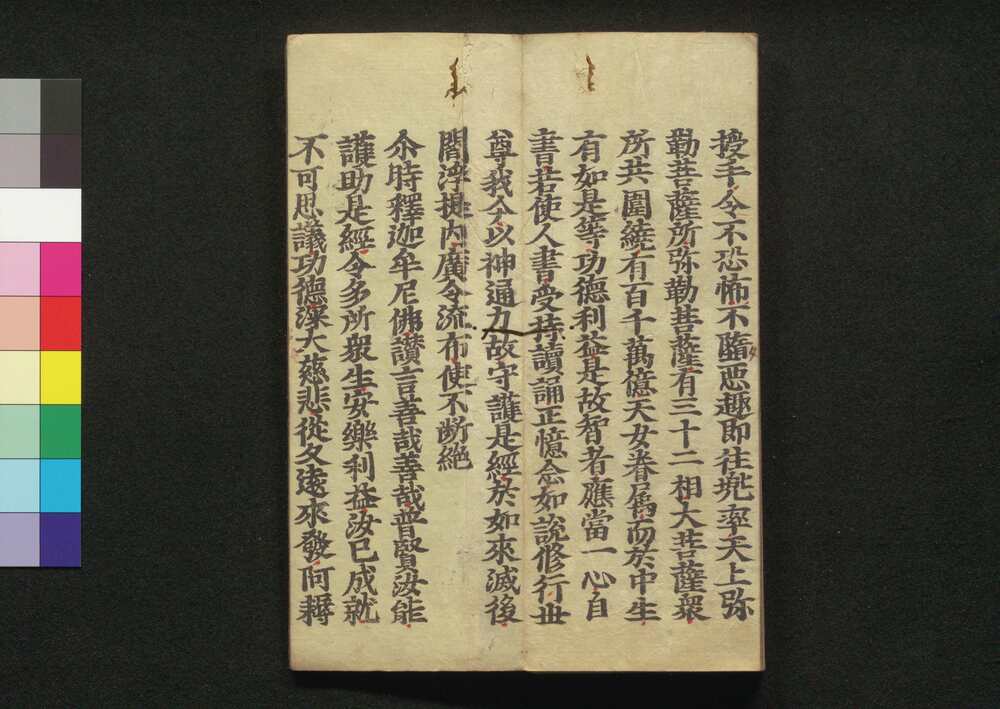 授手令不恐怖不墮惡趣即往兜率天上弥
勒菩薩所弥勒菩薩有三十二相大菩薩衆
所共圍繞有百千萬億天女眷属而於中生
有如是等功德利益是故智者應當一心自
書若使人書受持讀誦正憶念如說修行世
尊我今以神通力故守護是經於如來滅後
閻浮提内廣令流布使不断絶
尒時釋迦牟尼佛讃言善哉善哉普賢汝能
護助是經令多所衆生安樂利益汝已成就
不可思議功德深大慈悲從久遠來發阿耨